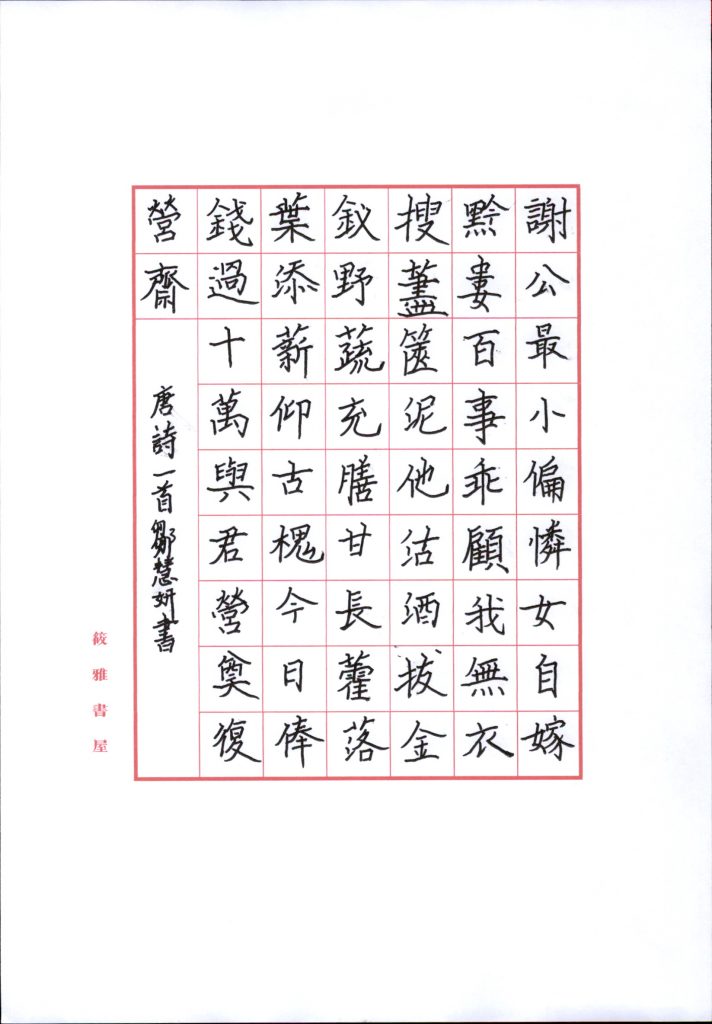 謝公最小偏憐女自嫁
黔婁百事乖顧我無衣
搜藎篋泥他沽酒拔金
釵野蔬充膳甘長藿落
葉添薪仰古槐今日俸
錢過十萬與君營奠復
營齋
唐詩一首鄒慧妍書
筱雅書屋